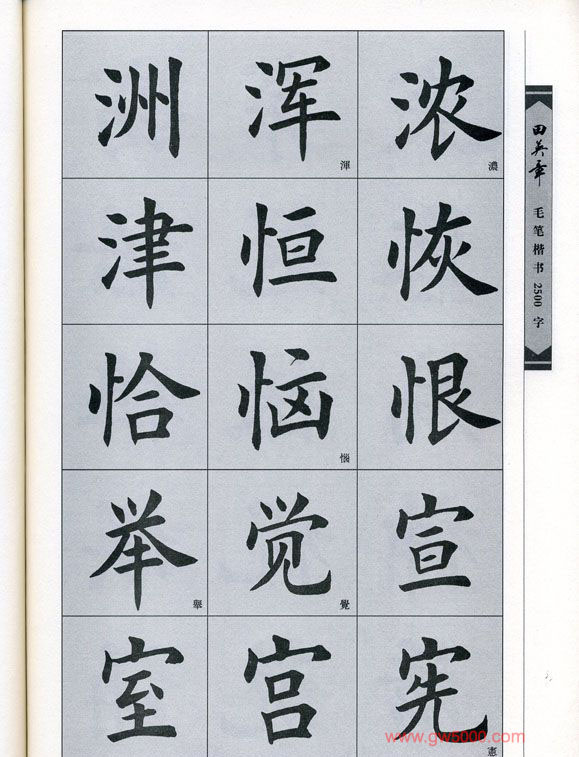 洲 浑 渾 浓 濃
津 恒 恢
恰 恼 惱 恨
举 舉 觉 覺 宣
室 宫 宪 憲
田英章 毛笔楷书2500字
www.gw5000.com